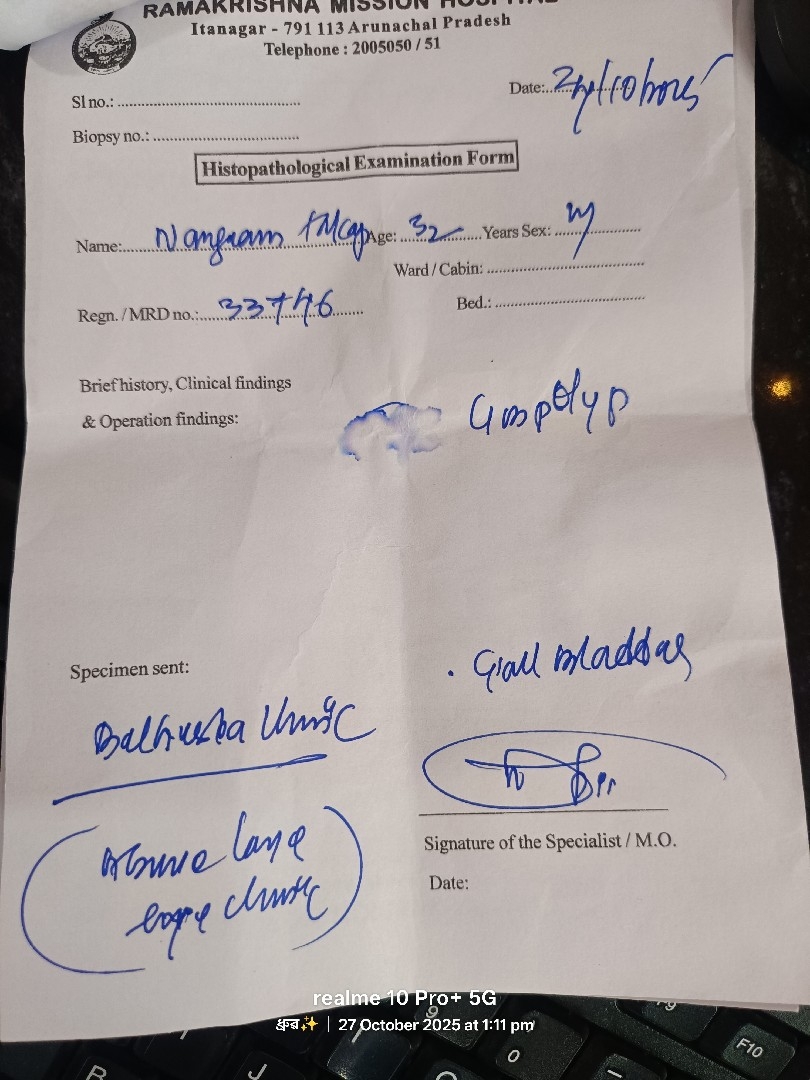 RAMAKRISHNA MISSION HOSPITAL
Itanagar - 791 113 Arunachal Pradesh
Telephone : 2005050 / 51
Sl no.:
Date:
Biopsy no.:
Histopathological Examination Form
Name: Age: 32 Years Sex: M
Ward / Cabin:
Regn. / MRD no.: 33746
Bed.:
Brief history, Clinical findings
& Operation findings:
polyp
Specimen sent:
Gall Bladder
Clinic
Signature of the Specialist / M.O.
Date:
realme 10 Pro+ 5G
ध्रुब✨ | 27 October 2025 at 1:11 pm
F9
9
0
F10
J
R